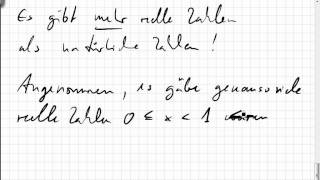 Es gibt mehr reelle Zahlen
als natürliche Zahlen!
Angenommen, es gäbe genauso viele
reelle Zahlen 0 ≤ x < 1